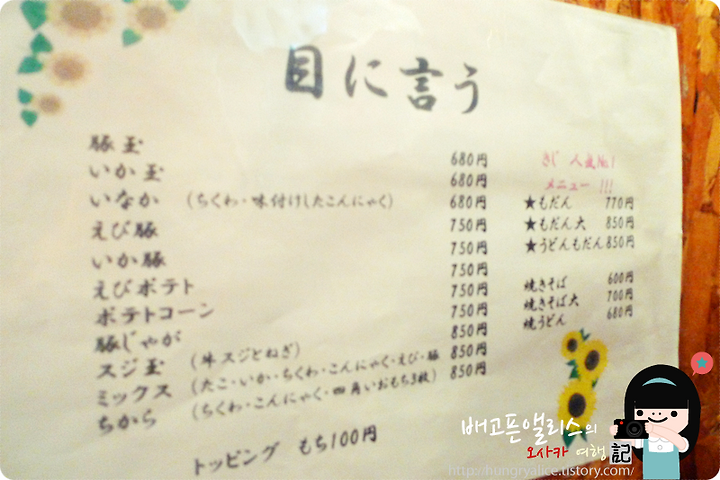 目に言う
豚玉 680円
いか玉 680円
いなか （ちくわ・味付けしたこんにゃく） 680円
えび豚 750円
いか豚 750円
えびポテト 750円
ポテトコーン 750円
豚じゃが 750円
スジ玉 （牛スジとねぎ） 850円
ミックス （たこ・いか・ちくわ・こんにゃく・えび・豚 850円
ちから （ちくわ・こんにゃく・四角いおもち3枚） 850円
トッピング もち100円
きじ 人気No1
メニュー !!!
★もだん 770円
★もだん大 850円
★うどんもだん 850円
焼きそば 600円
焼きそば大 700円
焼うどん 680円
배고픈앨리스의
오사카 여행 記
http://hungryalice.tistory.com/